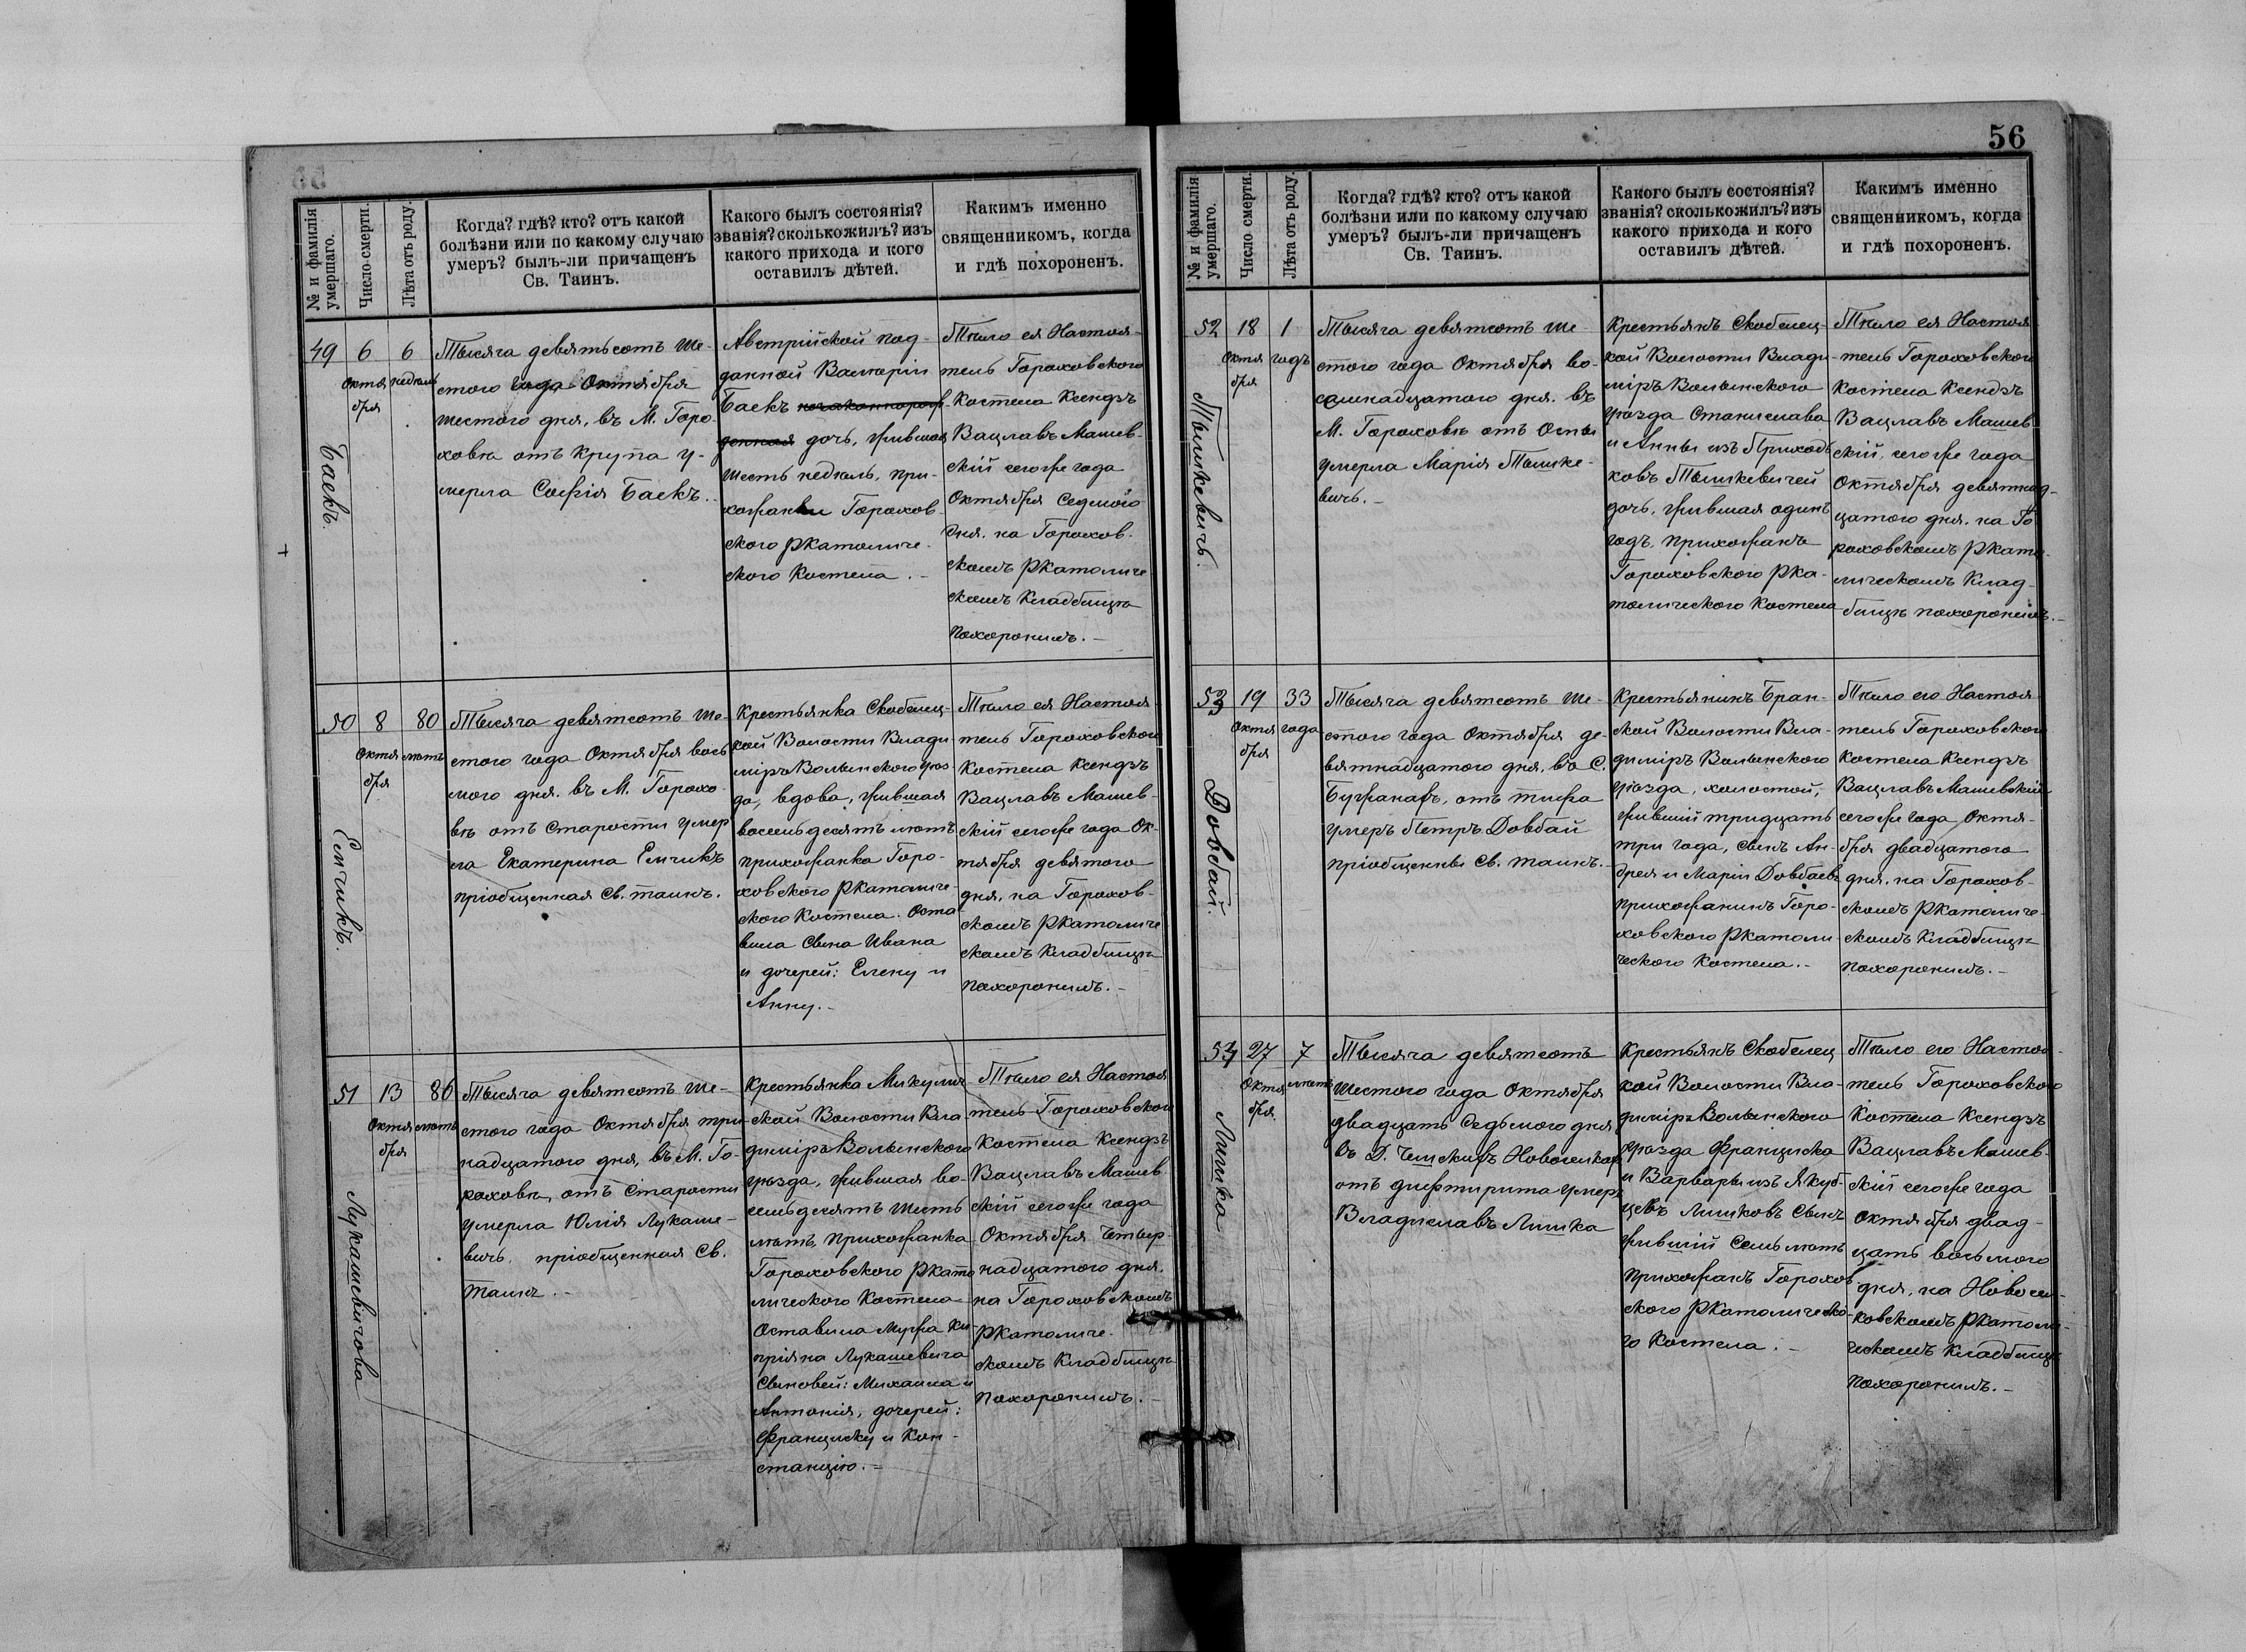 56
№ и фамилія
умершаго.
Число смерти.
Лѣта отъ роду.
Когда? гдѣ? кто? отъ какой
болѣзни или по какому случаю
умеръ? былъ-ли причащенъ
Св. Таинъ.
Какого былъ состоянія?
званія? сколько жилъ? изъ
какого прихода и кого
оставилъ дѣтей.
Какимъ именно
священникомъ, когда
и гдѣ похороненъ.
49
Баекъ.
6
Октя
бря
6
недѣль
Тысяча девятьсотъ ше-
стого года Октября
шестого дня, въ М. Горо-
ховѣ отъ крупа у-
мерла Софія Баекъ.
Австрійской под-
данной Валеріи
Баекъ незаконнорож-
денная дочь, жившая
шесть недѣль, при-
хожанки Горохов-
ского Ркатоличе-
ского Костела.
Тѣло ея Настоя-
тель Гороховского
Костела Ксендзъ
Вацлавъ Машев-
скій сегоже года
Октября Седмого
дня, на Горохов-
скомъ Ркатоличе
скомъ Кладбищѣ
похоронилъ.
50
Емчикъ.
8
Октя
бря
80
лѣтъ
Тысяча девятсотъ ше-
стого года Октября вось
мого дня, въ М. Горохо-
вѣ отъ старости умер
ла Екатерина Емчикъ
пріобщенная Св. таинъ.
Крестьянка Скобелец-
кой Волости Влади
міръ Волынского уѣз-
да, вдова, жившая
восемьдесятъ лѣтъ
прихожанка Горо-
ховского Ркатоличе-
ского Костела. Оста
вила Сына Ивана
и дочерей: Елену и
Анну.
Тѣло ея Настоя-
тель Гороховского
Костела Ксендзъ
Вацлавъ Машев-
скій сегоже года Ок-
тября девятого
дня, на Горохов-
скомъ Ркатоличе
скомъ Кладбищѣ
похоронилъ.
51
Лукашевичова
13
Октя
бря
86
лѣтъ
Тысяча девятсотъ ше-
стого года Октября три-
надцатого дня, въ М. Го-
роховѣ, отъ старости
умерла Юлія Лукаше-
вичъ, пріобщенная Св.
Таинъ.
Крестьянка Микулич
ской Волости Вла
диміръ Волынского
уѣзда, жившая во-
семьдесятъ шесть
лѣтъ, прихожанка
Гороховского Ркато
лического Костела
Оставила мужа Ки-
пріяна Лукашевича
Сыновей: Михаила и
Антонія, дочерей:
Франциску и Кон-
станцію.
Тѣло ея Настоя
тель Гороховского
Костела Ксендзъ
Вацлавъ Машев
скій сегоже года
Октября Четыр-
надцатого дня,
на Гороховскомъ
Ркатоличе-
скомъ Кладбищѣ
похоронилъ.
№ и фамилія
умершаго.
Число смерти.
Лѣта отъ роду.
Когда? гдѣ? кто? отъ какой
болѣзни или по какому случаю
умеръ? былъ-ли причащенъ
Св. Таинъ.
Какого былъ состоянія?
званія? сколько жилъ? изъ
какого прихода и кого
оставилъ дѣтей.
Какимъ именно
священникомъ, когда
и гдѣ похороненъ.
52
Тышкевичъ.
18
Октя
бря
1
годъ
Тысяча девятсотъ ше-
стого года Октября во-
семнадцатого дня, въ
М. Гороховѣ отъ Оспы
умерла Марія Тышке-
вичъ.
Крестьянъ Скобелец-
кой Волости Влади-
міръ Волынского
уѣзда Станислава
и Анны изъ Приход
ковъ Тышкевичей
дочь, жившая одинъ
годъ, прихожанъ
Гороховского Рка-
толического Костела
Тѣло ея Настоя
тель Гороховского
Костела Ксендзъ
Вацлавъ Машев
скій, сегоже года
Октября девятнад-
цатого дня, на Го
роховскомъ Ркато-
лическомъ Клад-
бищѣ похоронилъ.
53
Довбай.
19
Октя
бря
33
года
Тысяча девятсотъ ше-
стого года Октября де-
вятнадцатого дня, въ С.
Бужанахъ, отъ тифа
умеръ Петръ Довбай
пріобщенны Св. таинъ.
Крестьянинъ Бран-
ской Волости Вла-
диміръ Волынского
уѣзда, холостой,
жившій тридцать
три года, сынъ Ан-
дрея и Маріи Довбаевъ
прихожанинъ Горо-
ховского Ркатоли-
ческого Костела.
Тѣло его Настоя-
тель Гороховского
Костела Ксендзъ
Вацлавъ Машевскій
сегоже года Октя-
бря двадцатого
дня, на Горохов-
скомъ Ркатоличе-
скомъ Кладбищѣ
похоронилъ.
54
Лишка
27
Октя
бря
7
лѣтъ
Тысяча девятсотъ
шестого года Октября
двадцать седьмого дня,
въ Д. Чешскихъ Новоселкахъ
отъ дифтирита умеръ
Владиславъ Лишка
Крестьянъ Скобелец
кой Волости Вла-
диміръ Волынского
уѣзда Франциска
и Варвары изъ Якуб-
цевъ Лишковъ Сынъ
жившій семь лѣтъ
прихожанъ Горохов
ского Ркатолическо-
го Костела.
Тѣло его Настоя-
тель Гороховского
Костела Ксендзъ
Вацлавъ Машев-
скій сегоже года
Октября двад-
цать восьмого
дня, на Новосел-
ковскомъ Ркатоли-
ческомъ Кладбищѣ
похоронилъ.